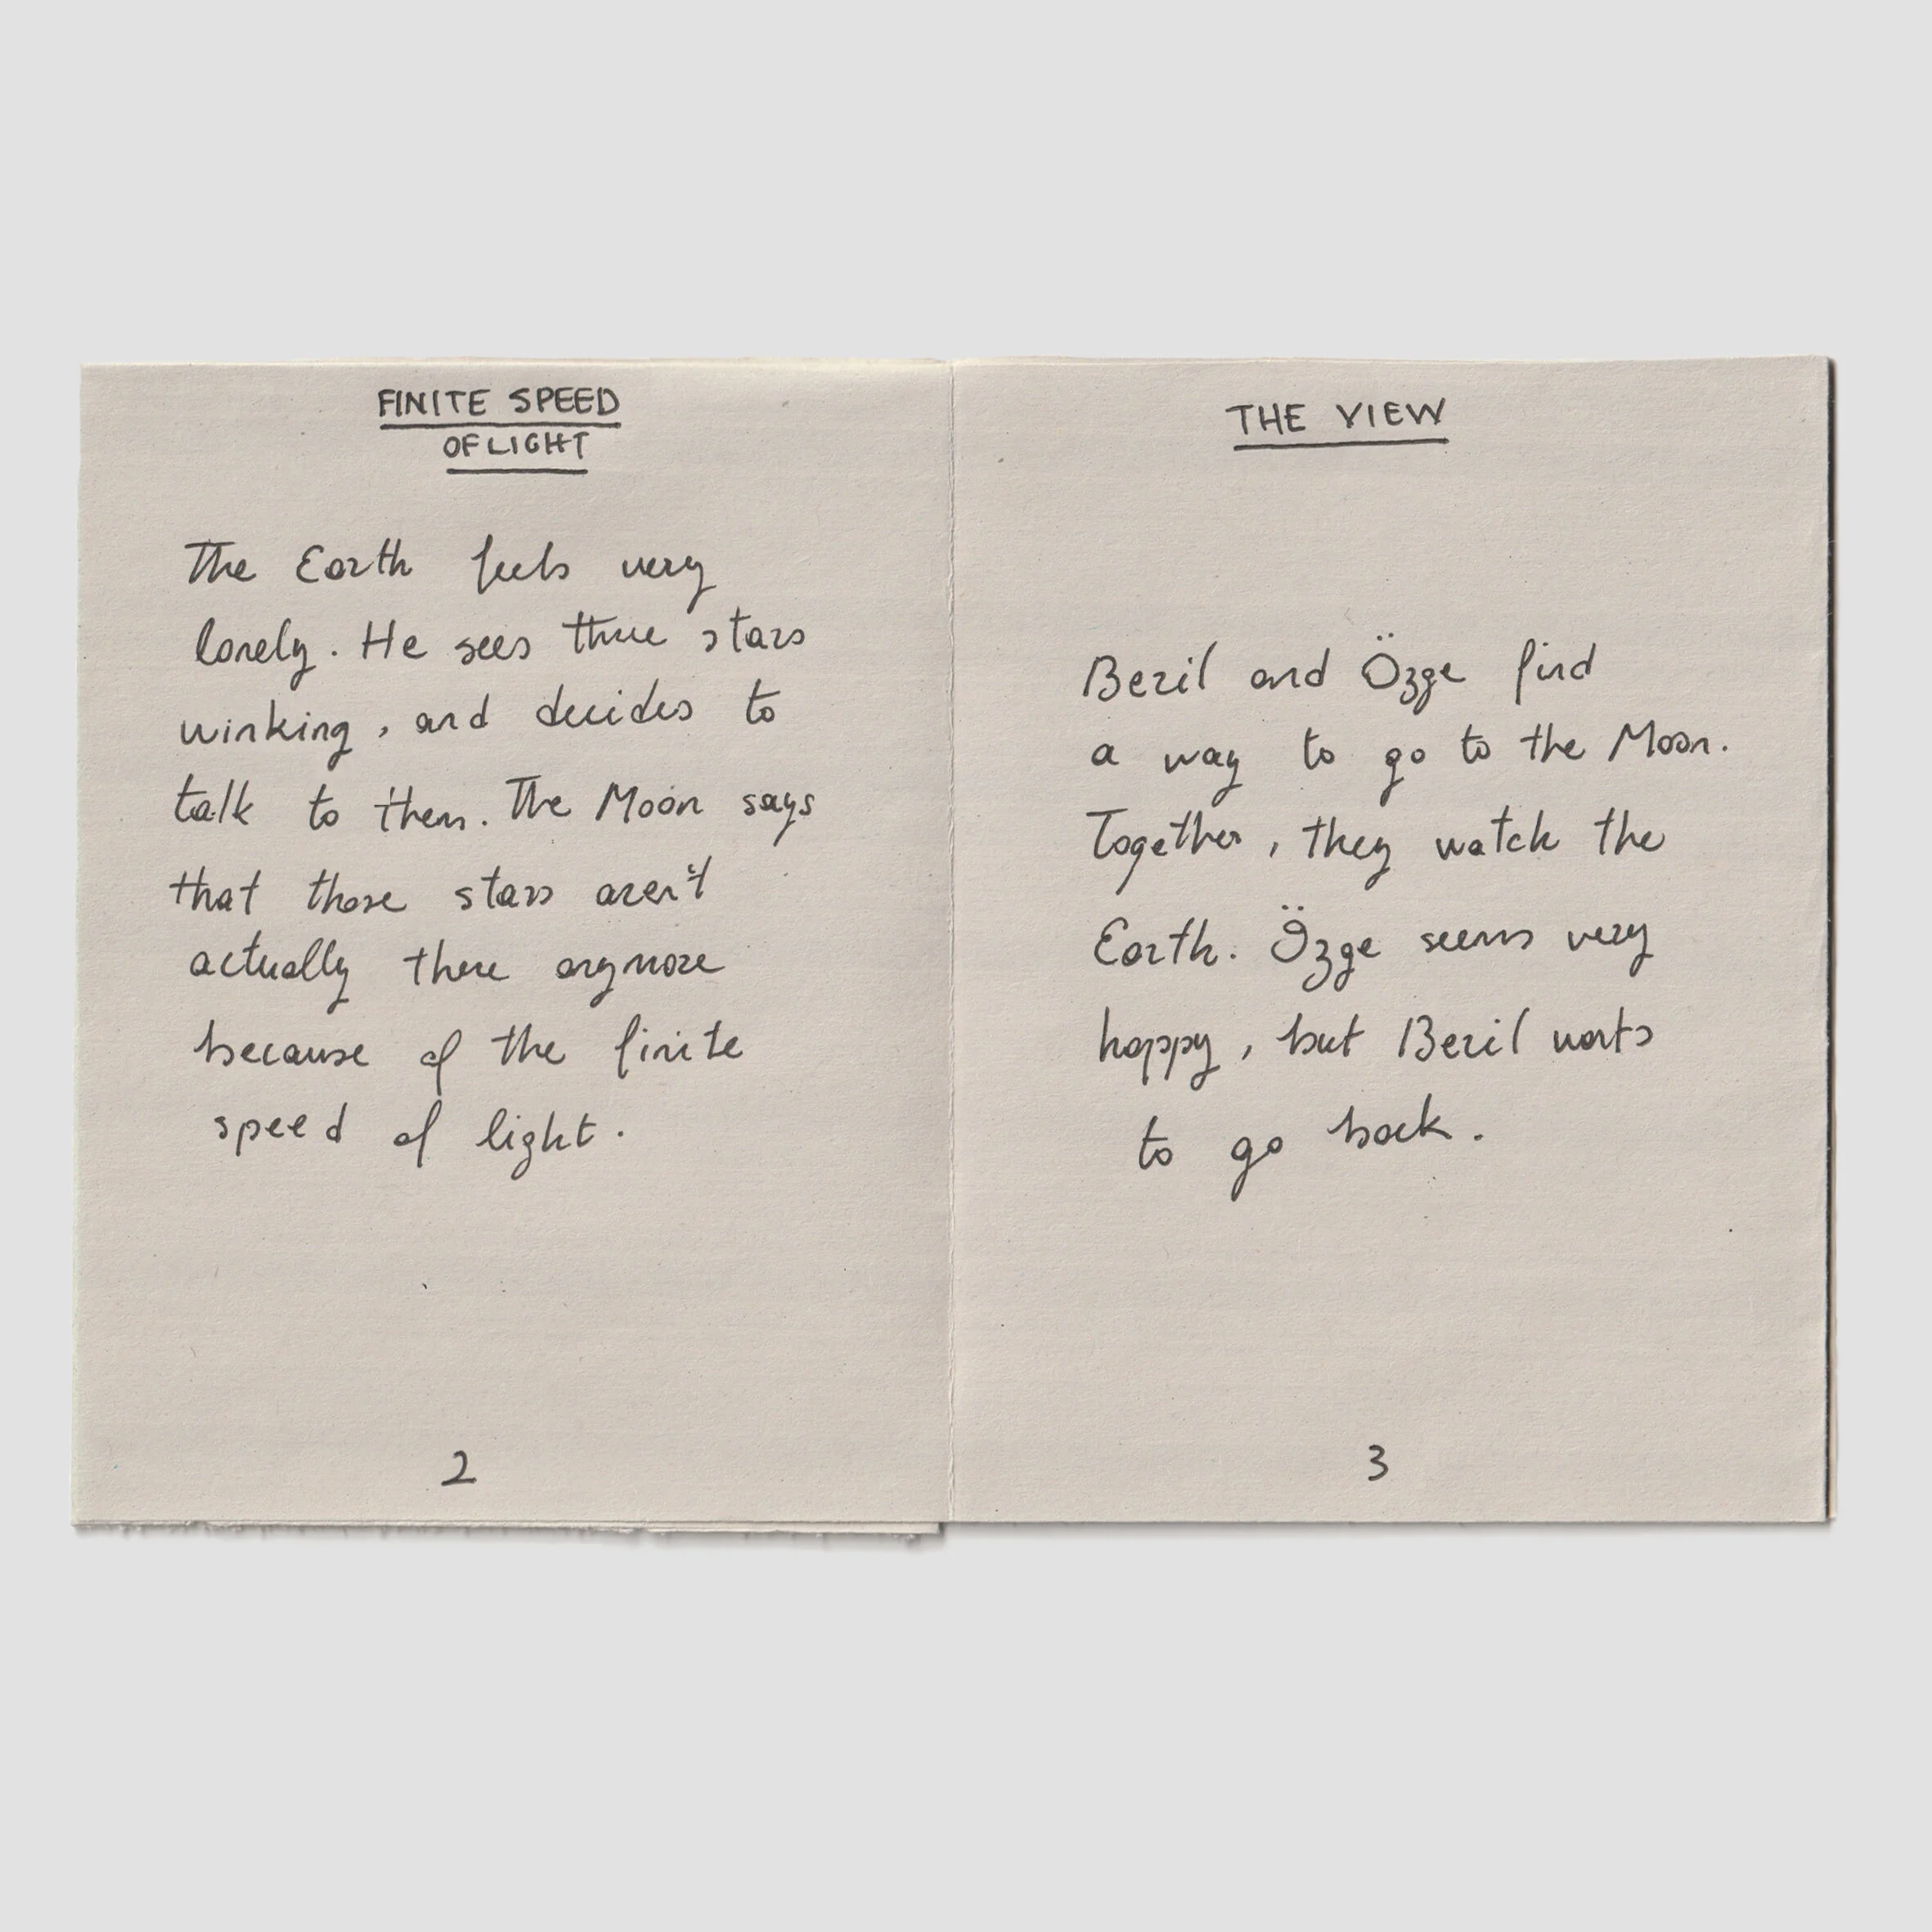 FINITE SPEED
OF LIGHT
The Earth feels very
lonely. He sees three stars
winking, and decides to
talk to them. The Moon says
that those stars aren't
actually there anymore
because of the finite
speed of light.
2
THE VIEW
Beril and Özge find
a way to go to the Moon.
Together, they watch the
Earth. Özge seems very
happy, but Beril wants
to go back.
3